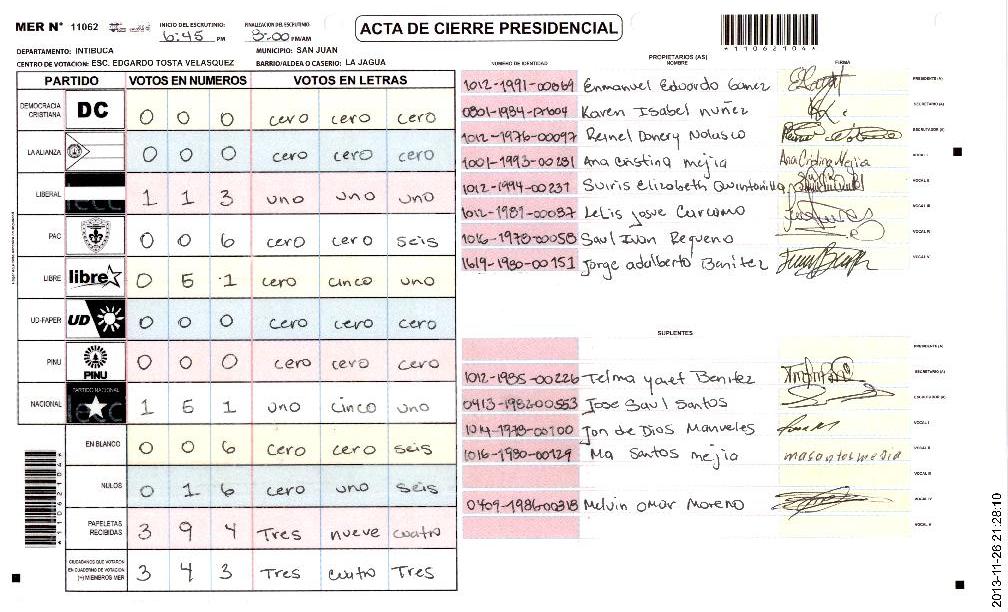 MER N° 11062
INICIO DEL ESCRUTINIO: 6:45 PM
FINALIZACION DEL ESCRUTINIO: 8:00 PM/AM
ACTA DE CIERRE PRESIDENCIAL
*11062104*
DEPARTAMENTO: INTIBUCA MUNICIPIO: SAN JUAN
CENTRO DE VOTACION: ESC. EDGARDO TOSTA VELASQUEZ BARRIO/ALDEA O CASERIO: LA JAGUA
PARTIDO VOTOS EN NUMEROS VOTOS EN LETRAS
DEMOCRACIA CRISTIANA DC 0 0 0 cero cero cero
LA ALIANZA 0 0 0 cero cero cero
LIBERAL 1 1 3 uno uno uno
PAC 0 0 6 cero cero seis
LIBRE libre 0 5 1 cero cinco uno
UD-FAPER UD 0 0 0 cero cero cero
PINU PINU 0 0 0 cero cero cero
NACIONAL PARTIDO NACIONAL 1 5 1 uno cinco uno
EN BLANCO 0 0 6 cero cero seis
NULOS 0 1 6 cero uno seis
PAPELETAS RECIBIDAS 3 9 4 Tres nueve cuatro
CIUDADANOS QUE VOTARON EN CUADERNO DE VOTACION (+) MIEMBROS MER 3 4 3 Tres cuatro Tres
*11062104*
PROPIETARIOS (AS)
NUMERO DE IDENTIDAD NOMBRE FIRMA
1012-1991-00069 Enmanuel Eduardo Gomez PRESIDENTE (A)
Karen Isabel nuñez SECRETARIO (A)
1012-1976-00097 Reinel Donery Nolasco ESCRUTADOR (A)
1001-1993-00281 Ana Cristina mejia Ana Cristina Mejia VOCAL I
1012-1994-00237 Suiris Elizabeth Quintanilla VOCAL II
1012-1987-00087 Lelis Josue Carcamo VOCAL III
1016-1978-00058 Saul Ivan Requeno VOCAL IV
1619-1980-00151 Jorge adalberto Benitez VOCAL V
SUPLENTES
PRESIDENTE (A)
1012-1985-00226 Telma yanet Benitez SECRETARIO (A)
0413-1982-00553 Jose Saul Santos ESCRUTADOR (A)
1014-1978-00100 Jon de Dios Manueles VOCAL I
1016-1980-00129 Ma Santos mejia masantosmedia VOCAL II
VOCAL III
0409-1986-00318 Melvin omar Moreno VOCAL IV
VOCAL V
2013-11-26 21:28:10